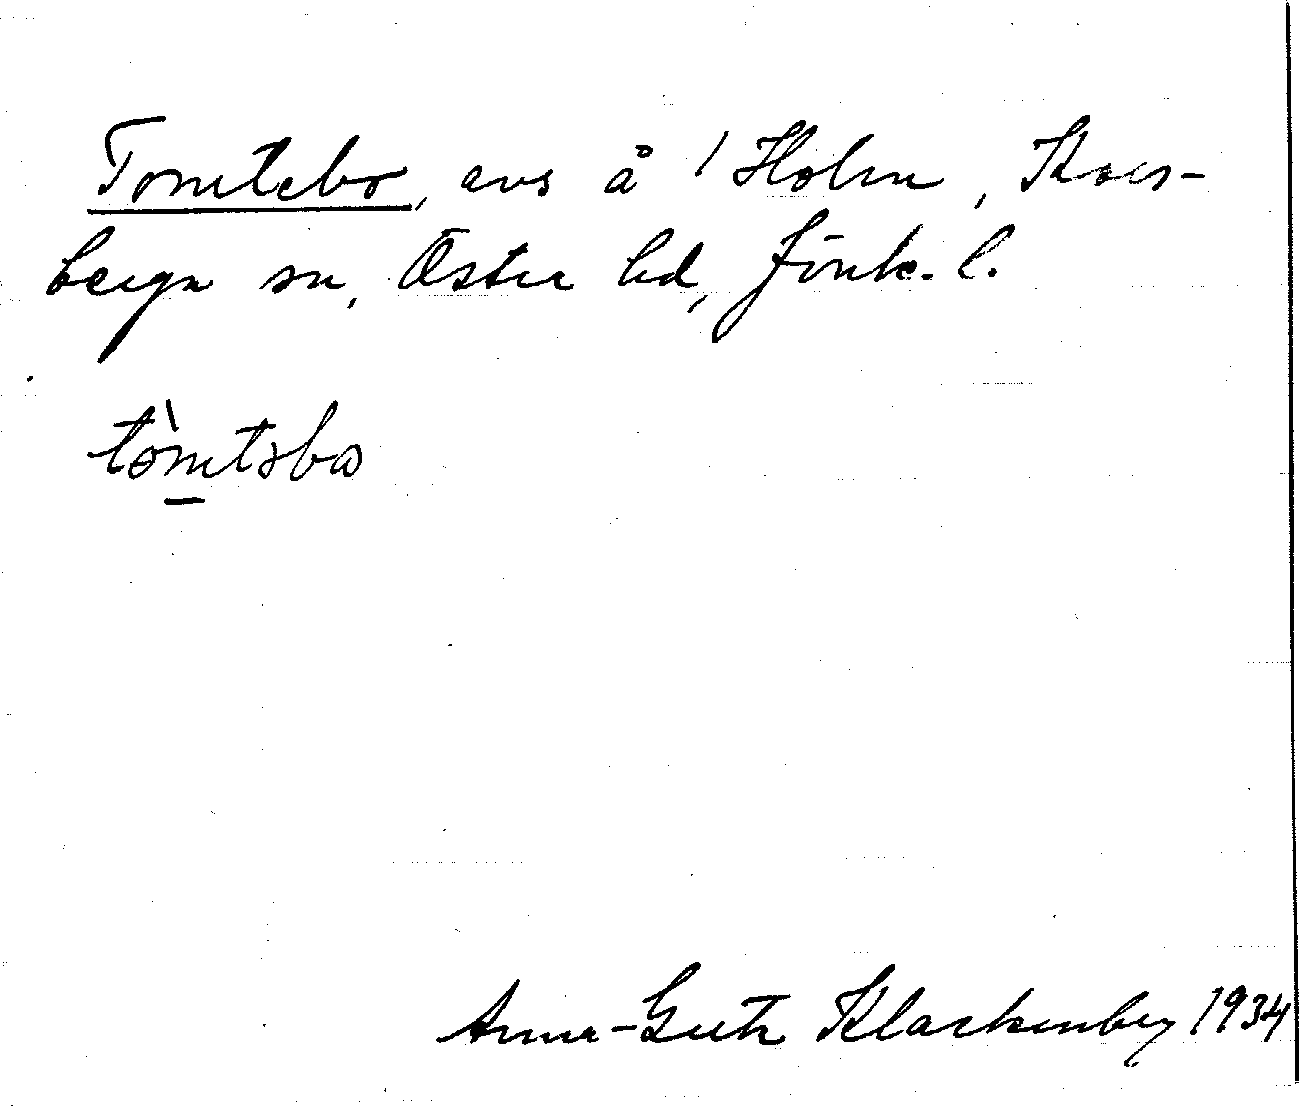 Tomtebo, avs å 1 Holm, Kors-
berga sn, Östra hd, Jönk. l.
tòmtəbω
Anna-Greta Klackenberg 1934